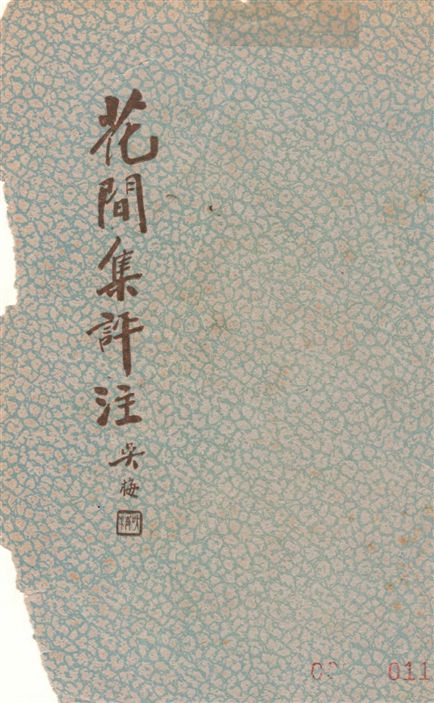 花間集評注
吳梅
011